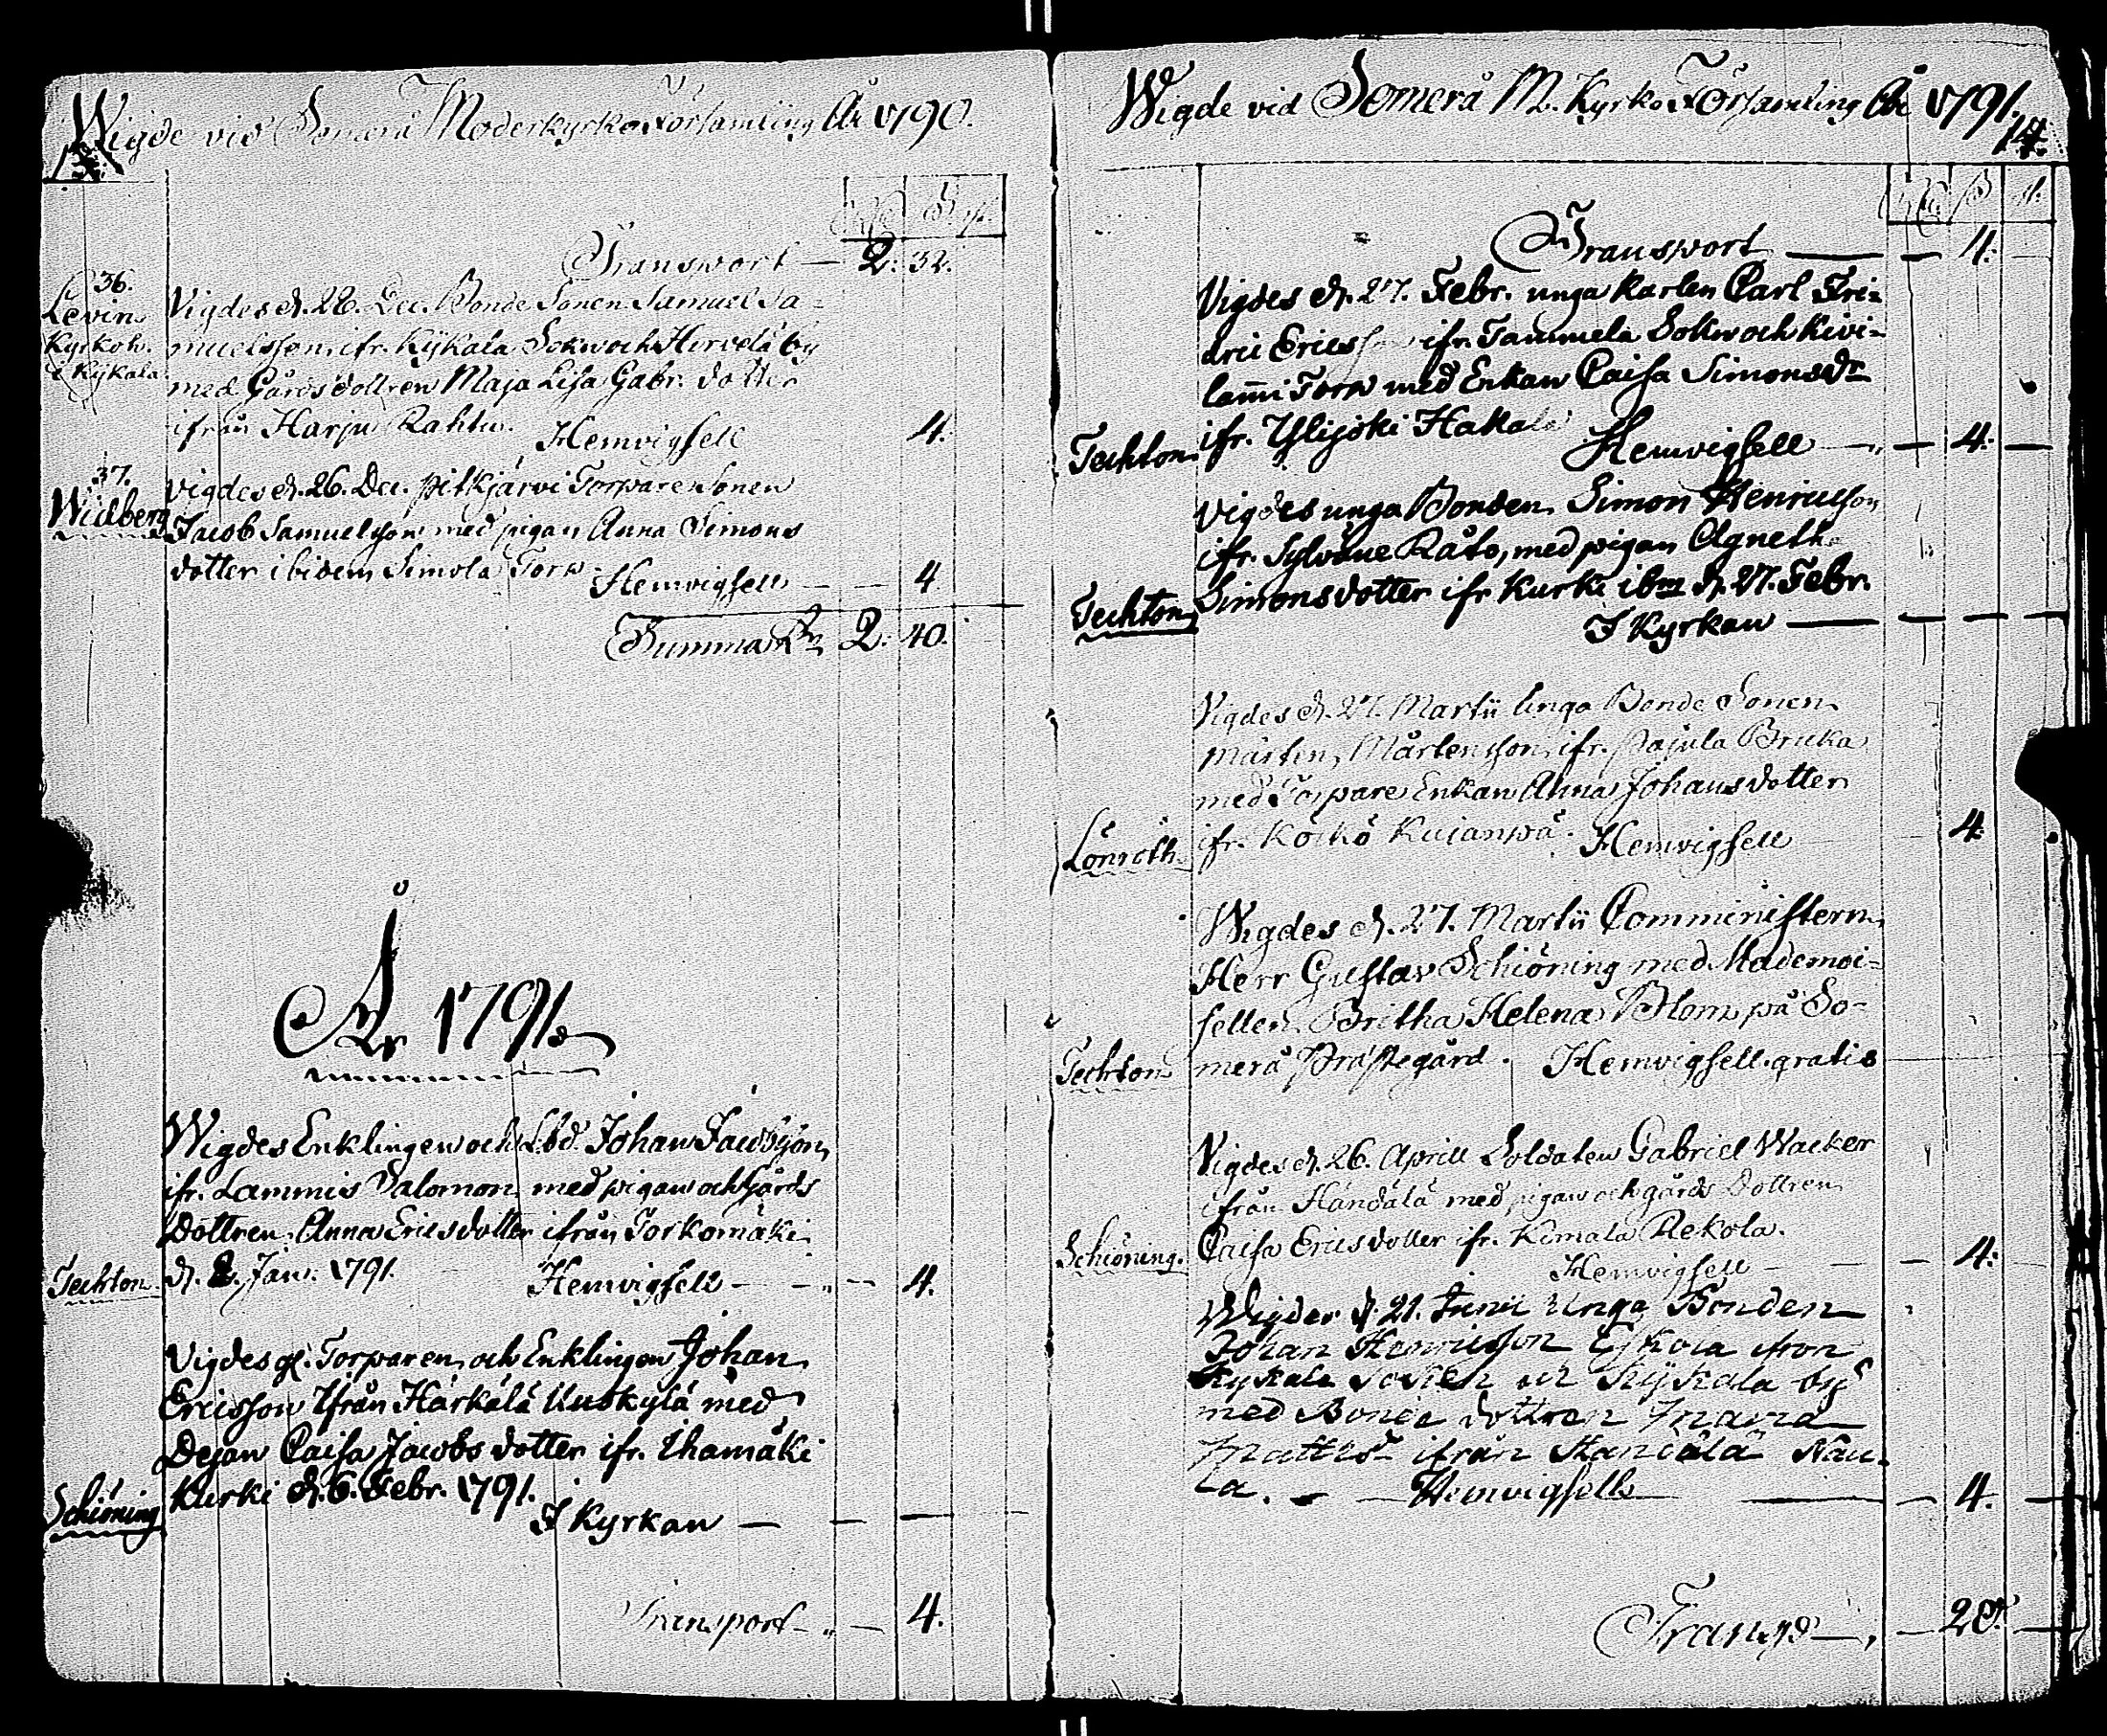 Wigde vid Somerå Moderkyrko Församling År 1790.
13.
Rd. ß. rst.
Transport — 2: 32.
36.
Levin
Kyrkoh.
i Kijkala
Vigdes d. 26. Dec. Bonde Sonen Samuel Sa-
muelsson ifr. Kijkala Sokn och Hirvelä by
med Gårds dottren Maja Lisa Gabr. dotter
ifrån Harju Rahtu. Hemvigsell 4.
37.
Widberg
Vigdes d. 26. Dec. pitkjärvi Torpare Sonen
Jacob Samuelsson med pigan Anna Simons
dotter ibidem Simola Torp. Hemvigsell — — 4
Summa Rd 2: 40.
År 1791.
Wigdes Enklingen och Lbd. Johan Jacobsson
ifr. Lammis Salomon med pigan och Gårds
Dottren Anna Ericsdotter ifrån Torkomäki
Techton. d. 2. Jan. 1791. Hemvigsell — — 4.
Vigdes gl. Torparen och Enklingen Johan
Ericsson Ifrån Härkälä Uuskylä med
Dejan Caisa Jacobs dotter ifr. Ihamäki
Schiöning Kurki d. 6. Febr. 1791.
I Kyrkan — — —
Transport — — 4.
Wigde vid Somerå M. Kyrko Församling År 1791.
14.
Rd. ß. rst.
Transport — — 4.
Vigdes d. 27. Febr. unga Karlen Carl Fri-
dric Ericsson ifr. Tammela Sokn och Kivi-
lam̄i Torp med Enkan Caisa Simonsdr
Techton. ifr. Ylijoki Hakala Hemvigsell — — 4. —
Vigdes unga Bonden Simon Henricsson
ifr. Sylväne Råto, med pigan Agneth
Techton Simonsdotter ifr Kurki ibm d. 27. Febr.
I Kyrkan — — — —
Vigdes d. 27. Martii Unga Bonde Sonen
Mårten Mårtensson ifr. Pajula Brucka
med Torpare Enkan Anna Johansdotter
Lönroth. ifr. Koiho Kujanpä. Hemvigsell 4.
Wigdes d. 27. Martii Comministern
Herr Gustav Schiöning med Mademoi-
sellen Britha Helena Blom på So-
Techton merå Prästegård. Hemvigsell. gratis
Vigdes d. 26. Aprill Soldaten Gabriel Wacker
ifrån Händälä med pigan och gårds dottren
Schiöning. Caisa Ericsdotter ifr. Kimala Rekola.
Hemvigsell — — 4.
Wigdes d. 21. Junii Unga Bonden
Johan Henricsson Eskola ifron
Kykala Socken och Kijkala by
med Bonde dottren Maria
Mattsd. ifrån Händälä Nau-
la. — — Hemvigsell — — 4. —
Transp — — 20. —